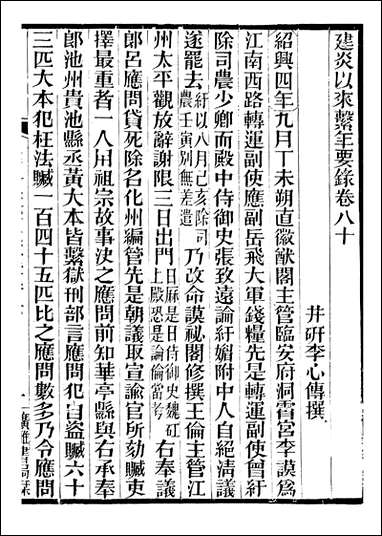 建炎以來繫年要錄卷八十
井研李心傳撰
紹興四年九月丁未朔直徽猷閣主管臨安府洞霄宮李謨爲
江南西路轉運副使應副岳飛大軍錢糧先是轉運副使曾紆
除司農少卿而殿中侍御史張致遠論紆媚附中人自絕清議
遂罷去紆以八月己亥除司農壬寅別無差遣乃改命謨祕閣修撰王倫主管江
州太平觀放辭謝限三日出門日厤是日侍御史魏矼上殿恐是論倫當考右奉議
郎呂應問貸死除名化州編管先是朝議取宣諭官所劾贓吏
擇最重者一人用祖宗故事決之應問前知華亭縣與右承奉
郎池州貴池縣丞黃大本皆繫獄刑部言應問犯自盜贓六十
三匹大本犯枉法贓一百四十五匹比之應問數多乃令應問
一 廣雅書局栞